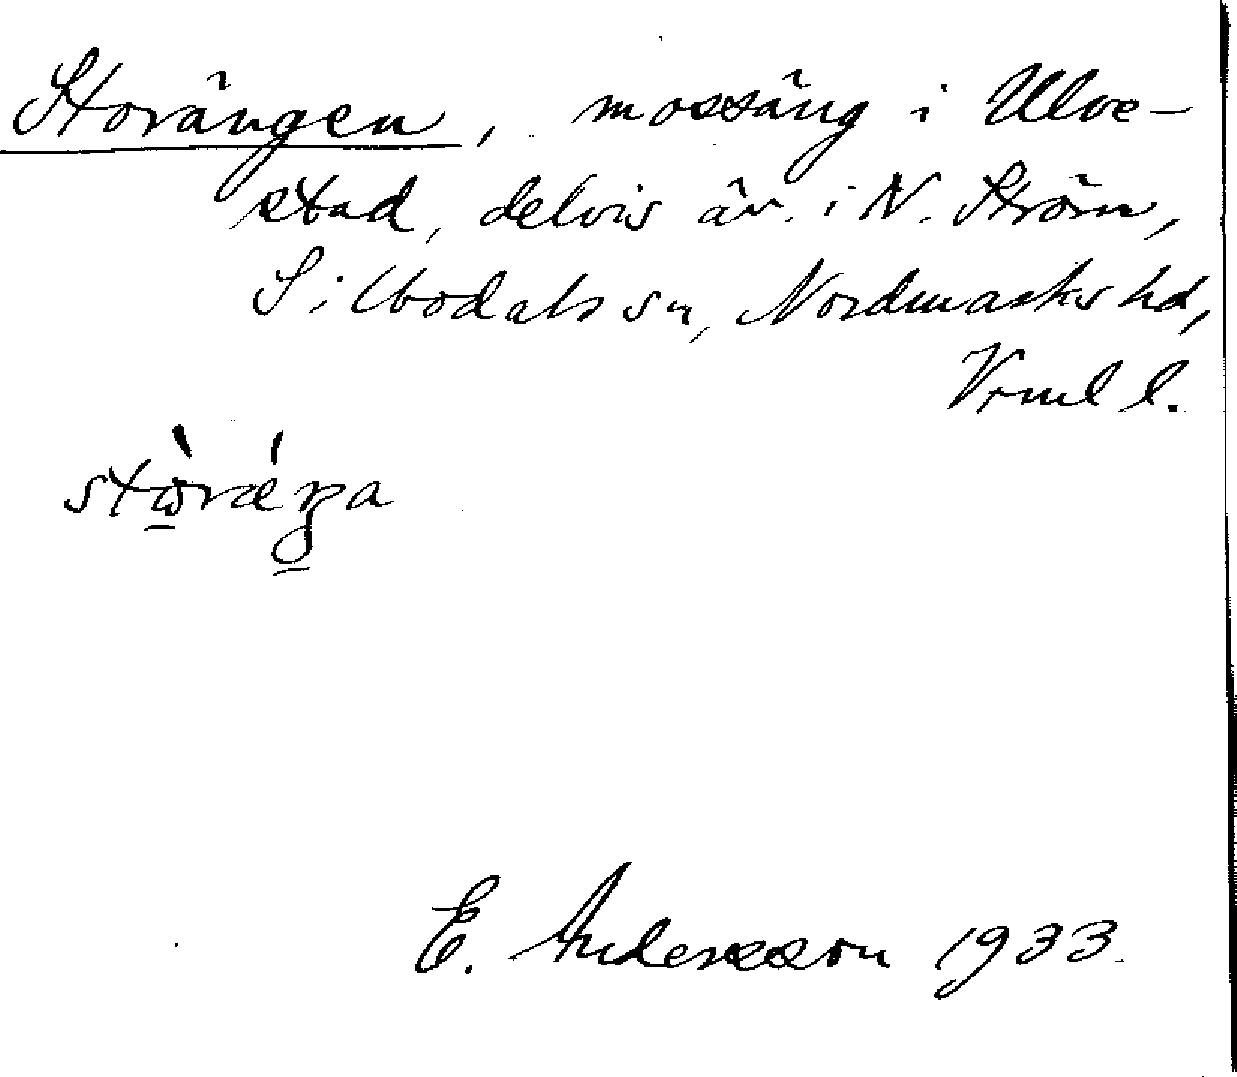 Storängen, mossäng i Ulve-
stad, delvis äv. i N. Ström,
Silbodals sn, Nordmarks hd,
Vrml l.
stὼ̠rǽŋa
E. Andersson 1933.